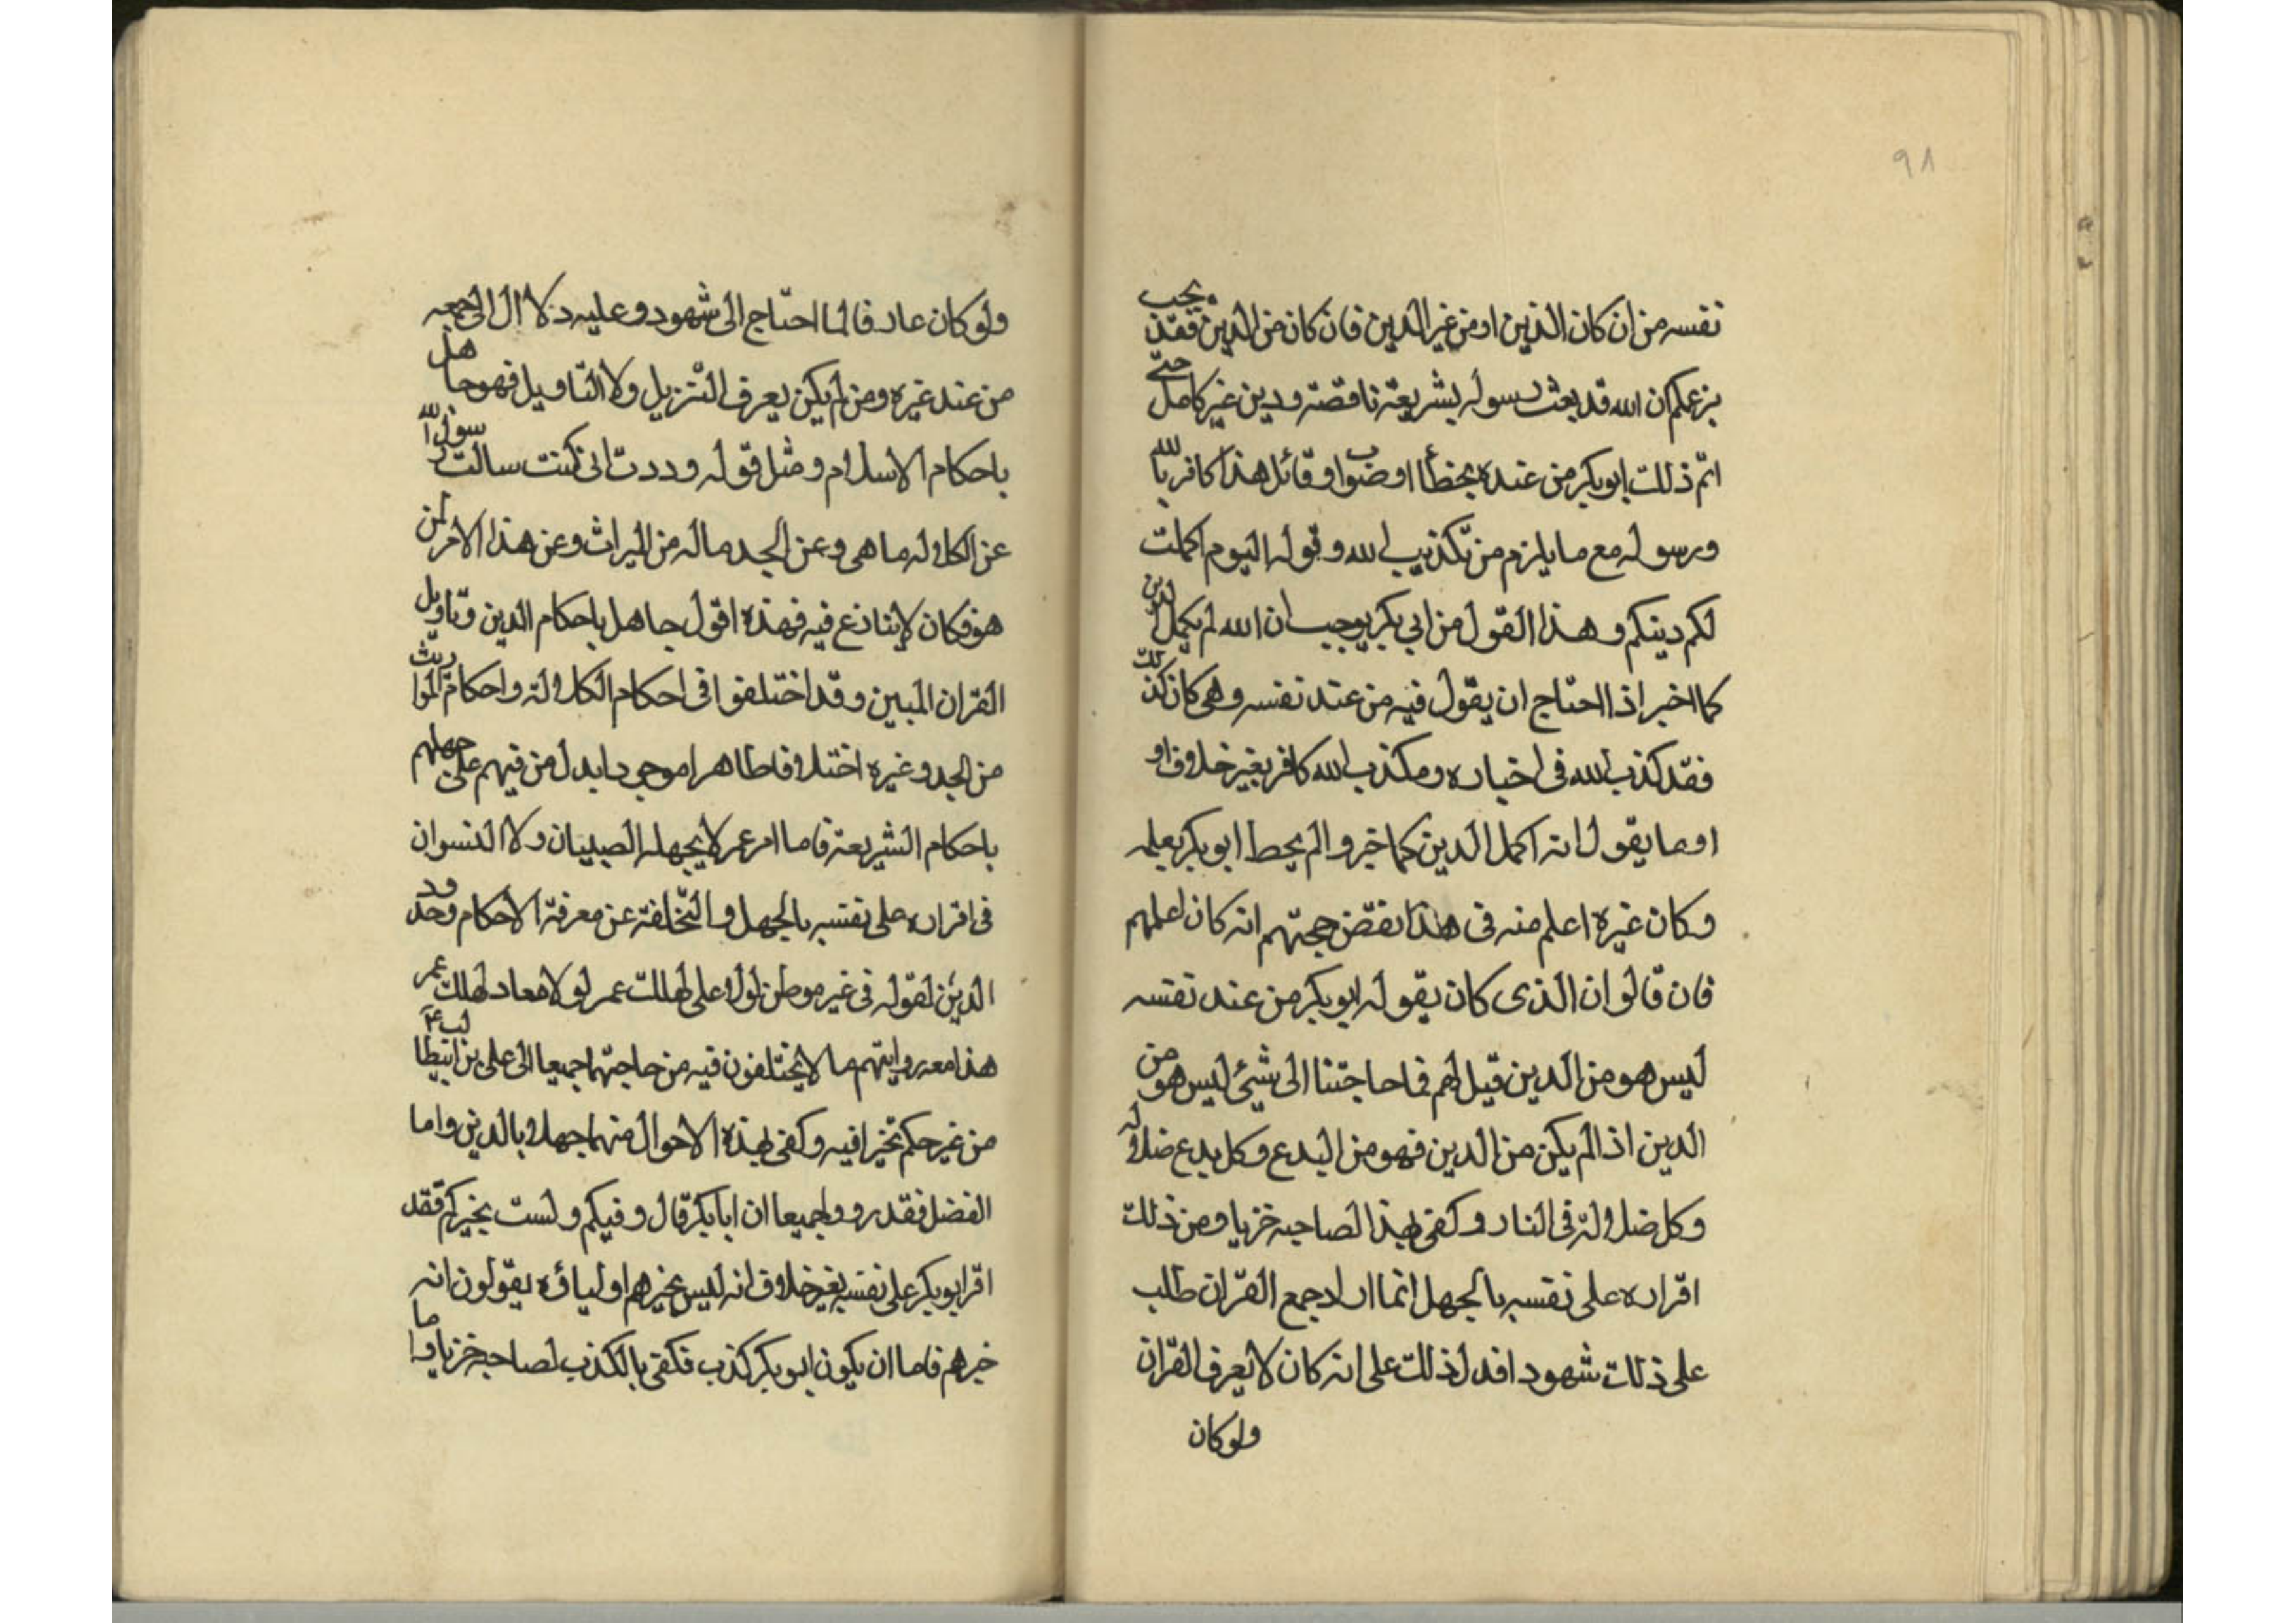 ٩٨
نفسه من ان كان الذين او من غير الدين فان كان من الدين فقد يجب
بزعمكم ان الله قد بعث رسوله بشريعة ناقصة ودين غير كامل حتى
اتم ذلك ابو بكر من عنده بخطأ او صواب وقائل هذا كافر بالله
ورسوله مع ما يلزم من تكذيب الله وقوله اليوم اكملت
لكم دينكم وهذا القول من ابي بكر يوجب ان الله لم يكمل الدين
كما اخبر اذا احتاج ان يقول فيه من عند نفسه وهى كان كذلك
فقد كذب الله فى اخباره ومكذب الله كافر بغير خلاف او
او ما يقول انه اكمل الدين كما خبر والم يحط ابو بكر بعلمه
وكان غيره اعلم منه فى هذا نقض حجتهم انه كان اعلمهم
فان قالوا ان الذى كان يقوله ابو بكر من عند نفسه
ليس هو من الدين قيل لهم فما حاجتنا الى شيئ ليس هو من
الدين اذ الم يكن من الدين فهو من البدع وكل بدع ضلاله
وكل ضلالة فى النار وكفى بهذا لصاحبه خزيا ومن ذلك
اقراره على نفسه بالجهل انما اراد جمع القران طلب
على ذلك شهودا فدل ذلك على انه كان لا يعرف القران
ولو كان
ولو كان عارفا لما احتاج الى شهود وعليه دلا ال الى جمعه
من عند غيره ومن لم يكن يعرف التنزيل ولا التاويل فهو جاهل
باحكام الاسلام ومثل قوله وددت انى كنت سالت رسول الله
عن الكلاله ما هى وعن الجد ماله من الميراث وعن هذا الامر لمن
هو فكان لا ينازع فيه فهذه اقول جاهل باحكام الدين وتاويل
القران المبين وقد اختلفوا فى احكام الكلالة واحكام المواريث
من الجد وغيره اختلافا ظاهرا موجودا يدل من فيهم على جهلهم
باحكام الشريعة فاما امر عمر لا يجهله الصبيان ولا النسوان
فى اقراره على نفسه بالجهل والتخلفة عن معرفة الاحكام وحدود
الدين لقوله فى غير موطن لولا على لهلك عمر لولا معاد لهلك عمر
هذا معه روايتهم ما لا يختلفون فيه من حاجتهما جميعا الى على بن ابيطالب ع
من غير حكم تخيرا فيه وكفى بهذه الاحوال منهما جهلا بالدين واما
الفضل فقد رووا جميعا ان ابا بكر قال وفيكم ولست بخيركم فقد
اقر ابو بكر على نفسه بغير خلاف انه ليس بخيرهم اولياؤه يقولون انه
خيرهم فاما ان يكون ابو بكر كذب فكفى بالكذب لصاحبه خزيا واما